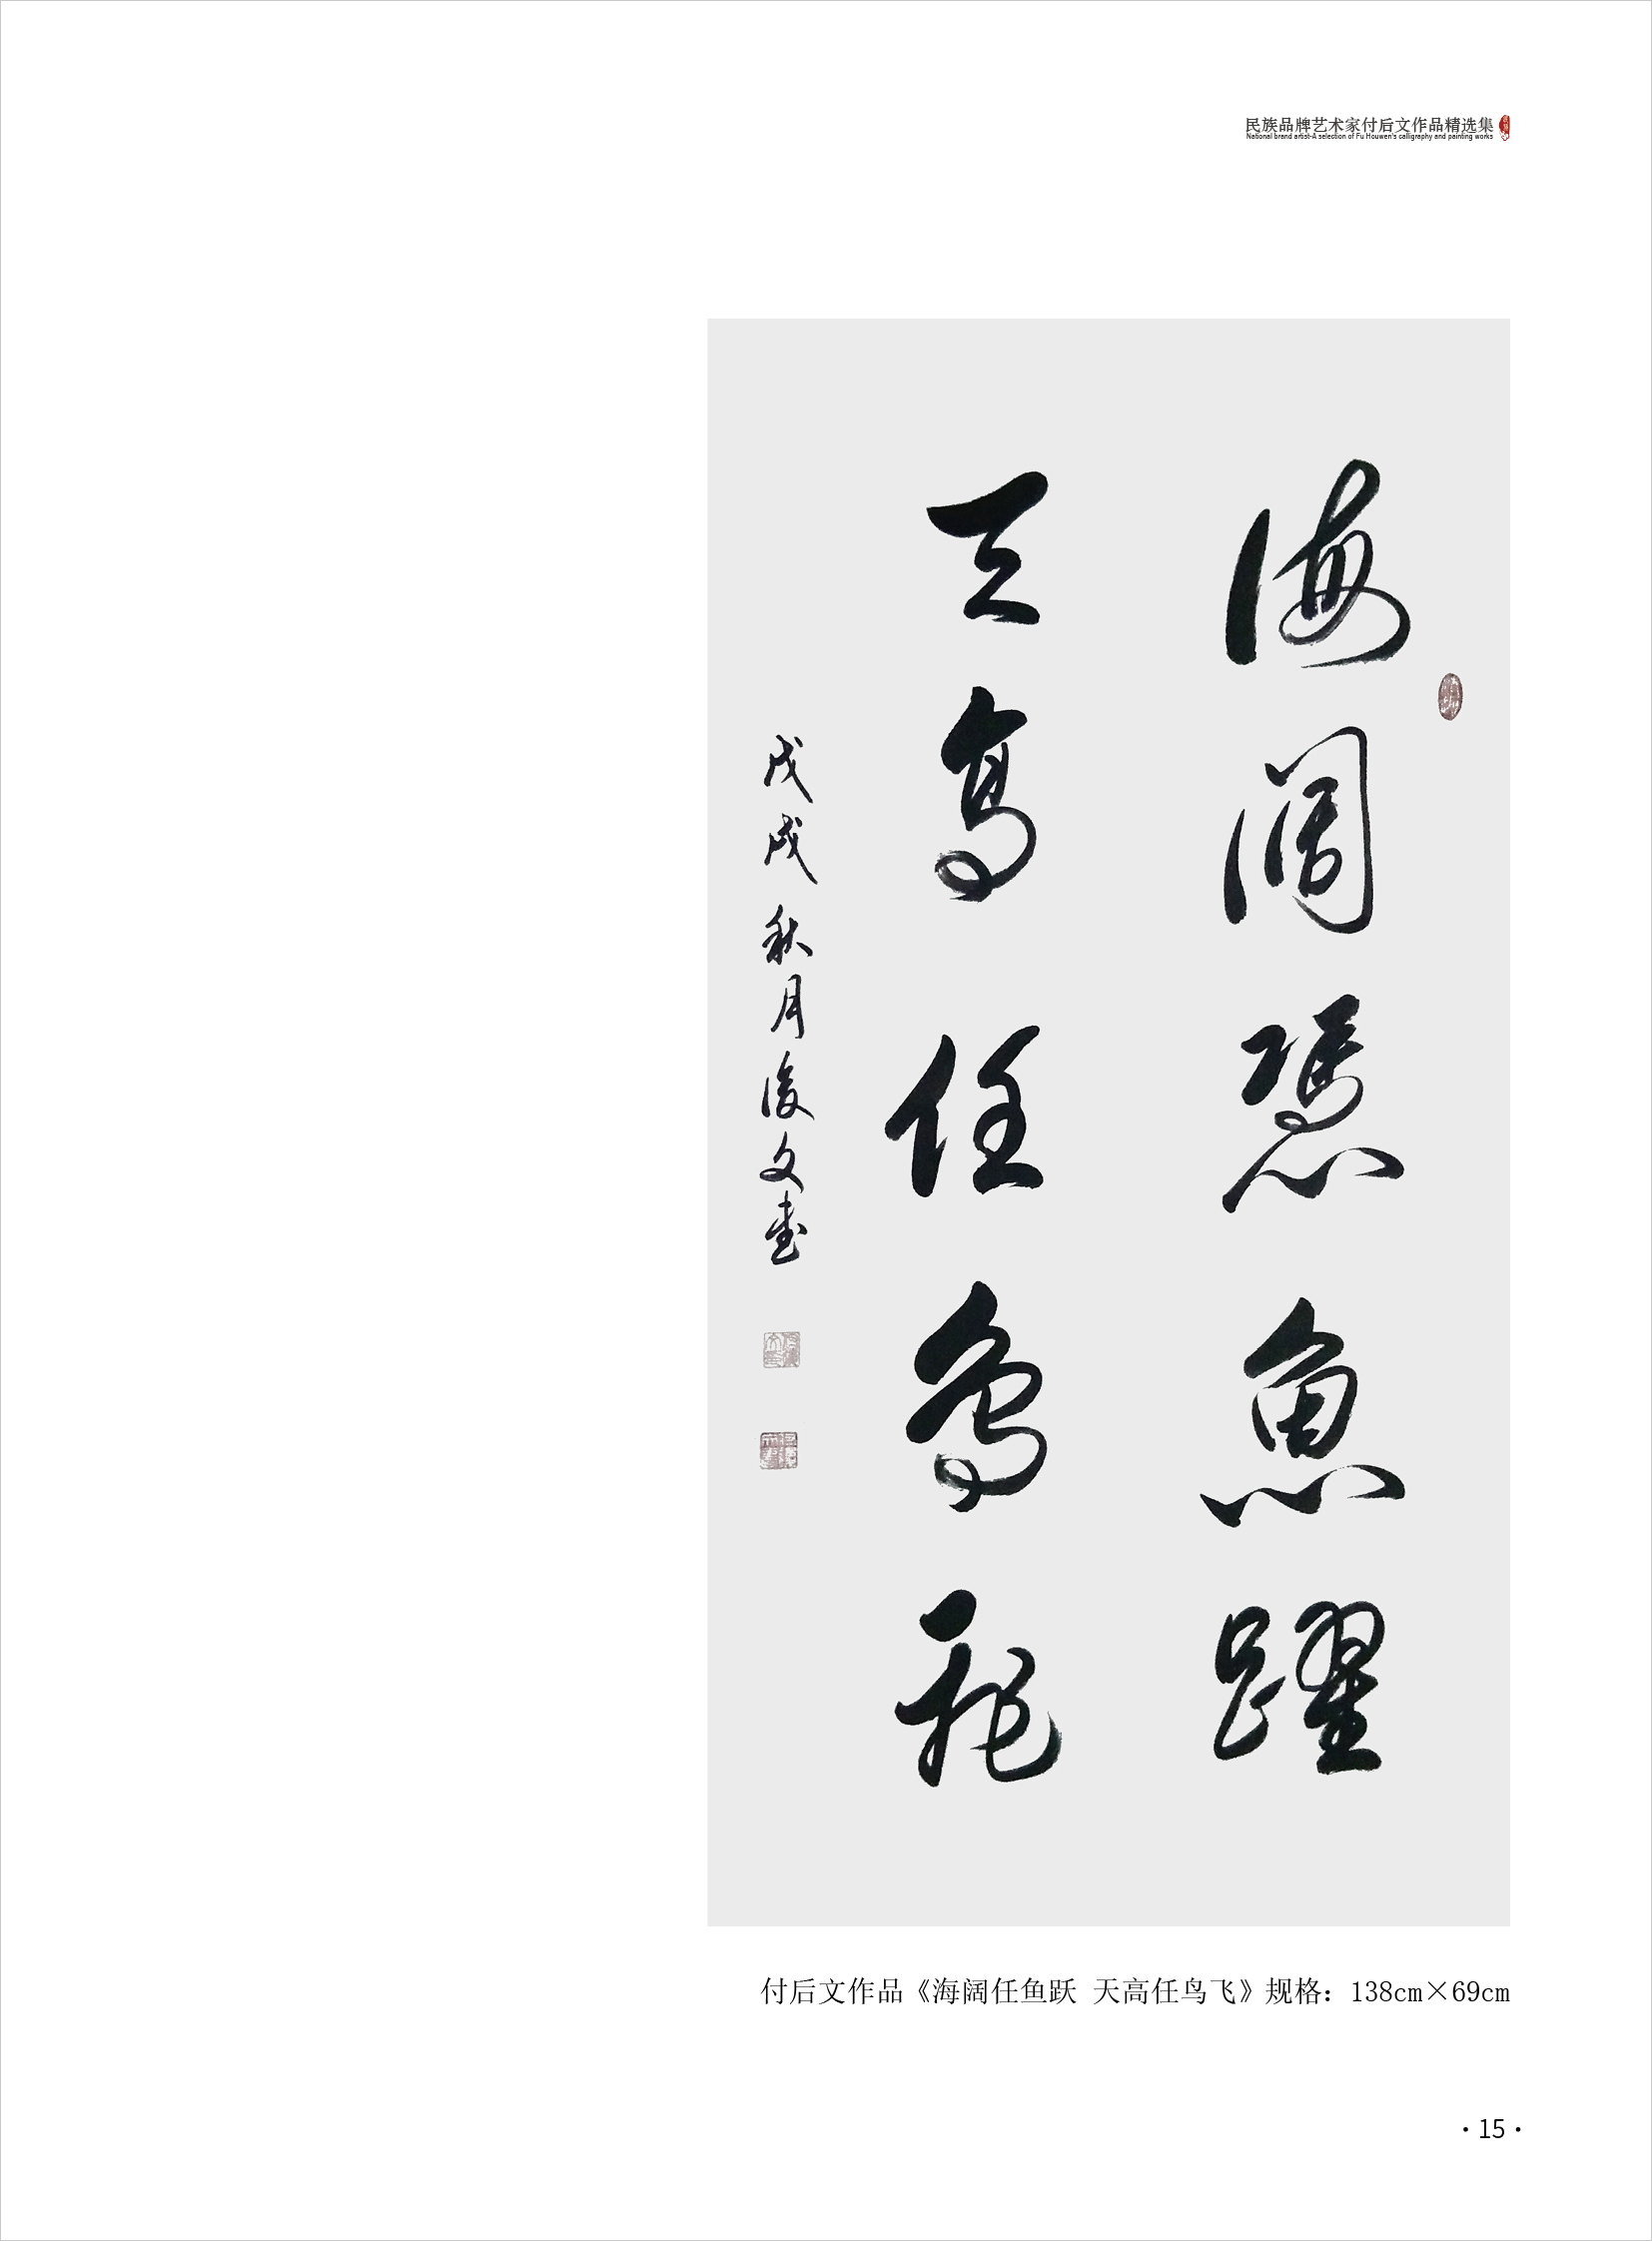 民族品牌艺术家付后文作品精选集
National brand artist-A selection of Fu Houwen's calligraphy and painting works
海闊憑魚躍
天高任鳥飛
戊戌秋月後文書
付后文作品《海阔任鱼跃 天高任鸟飞》规格：138cm×69cm
·15·